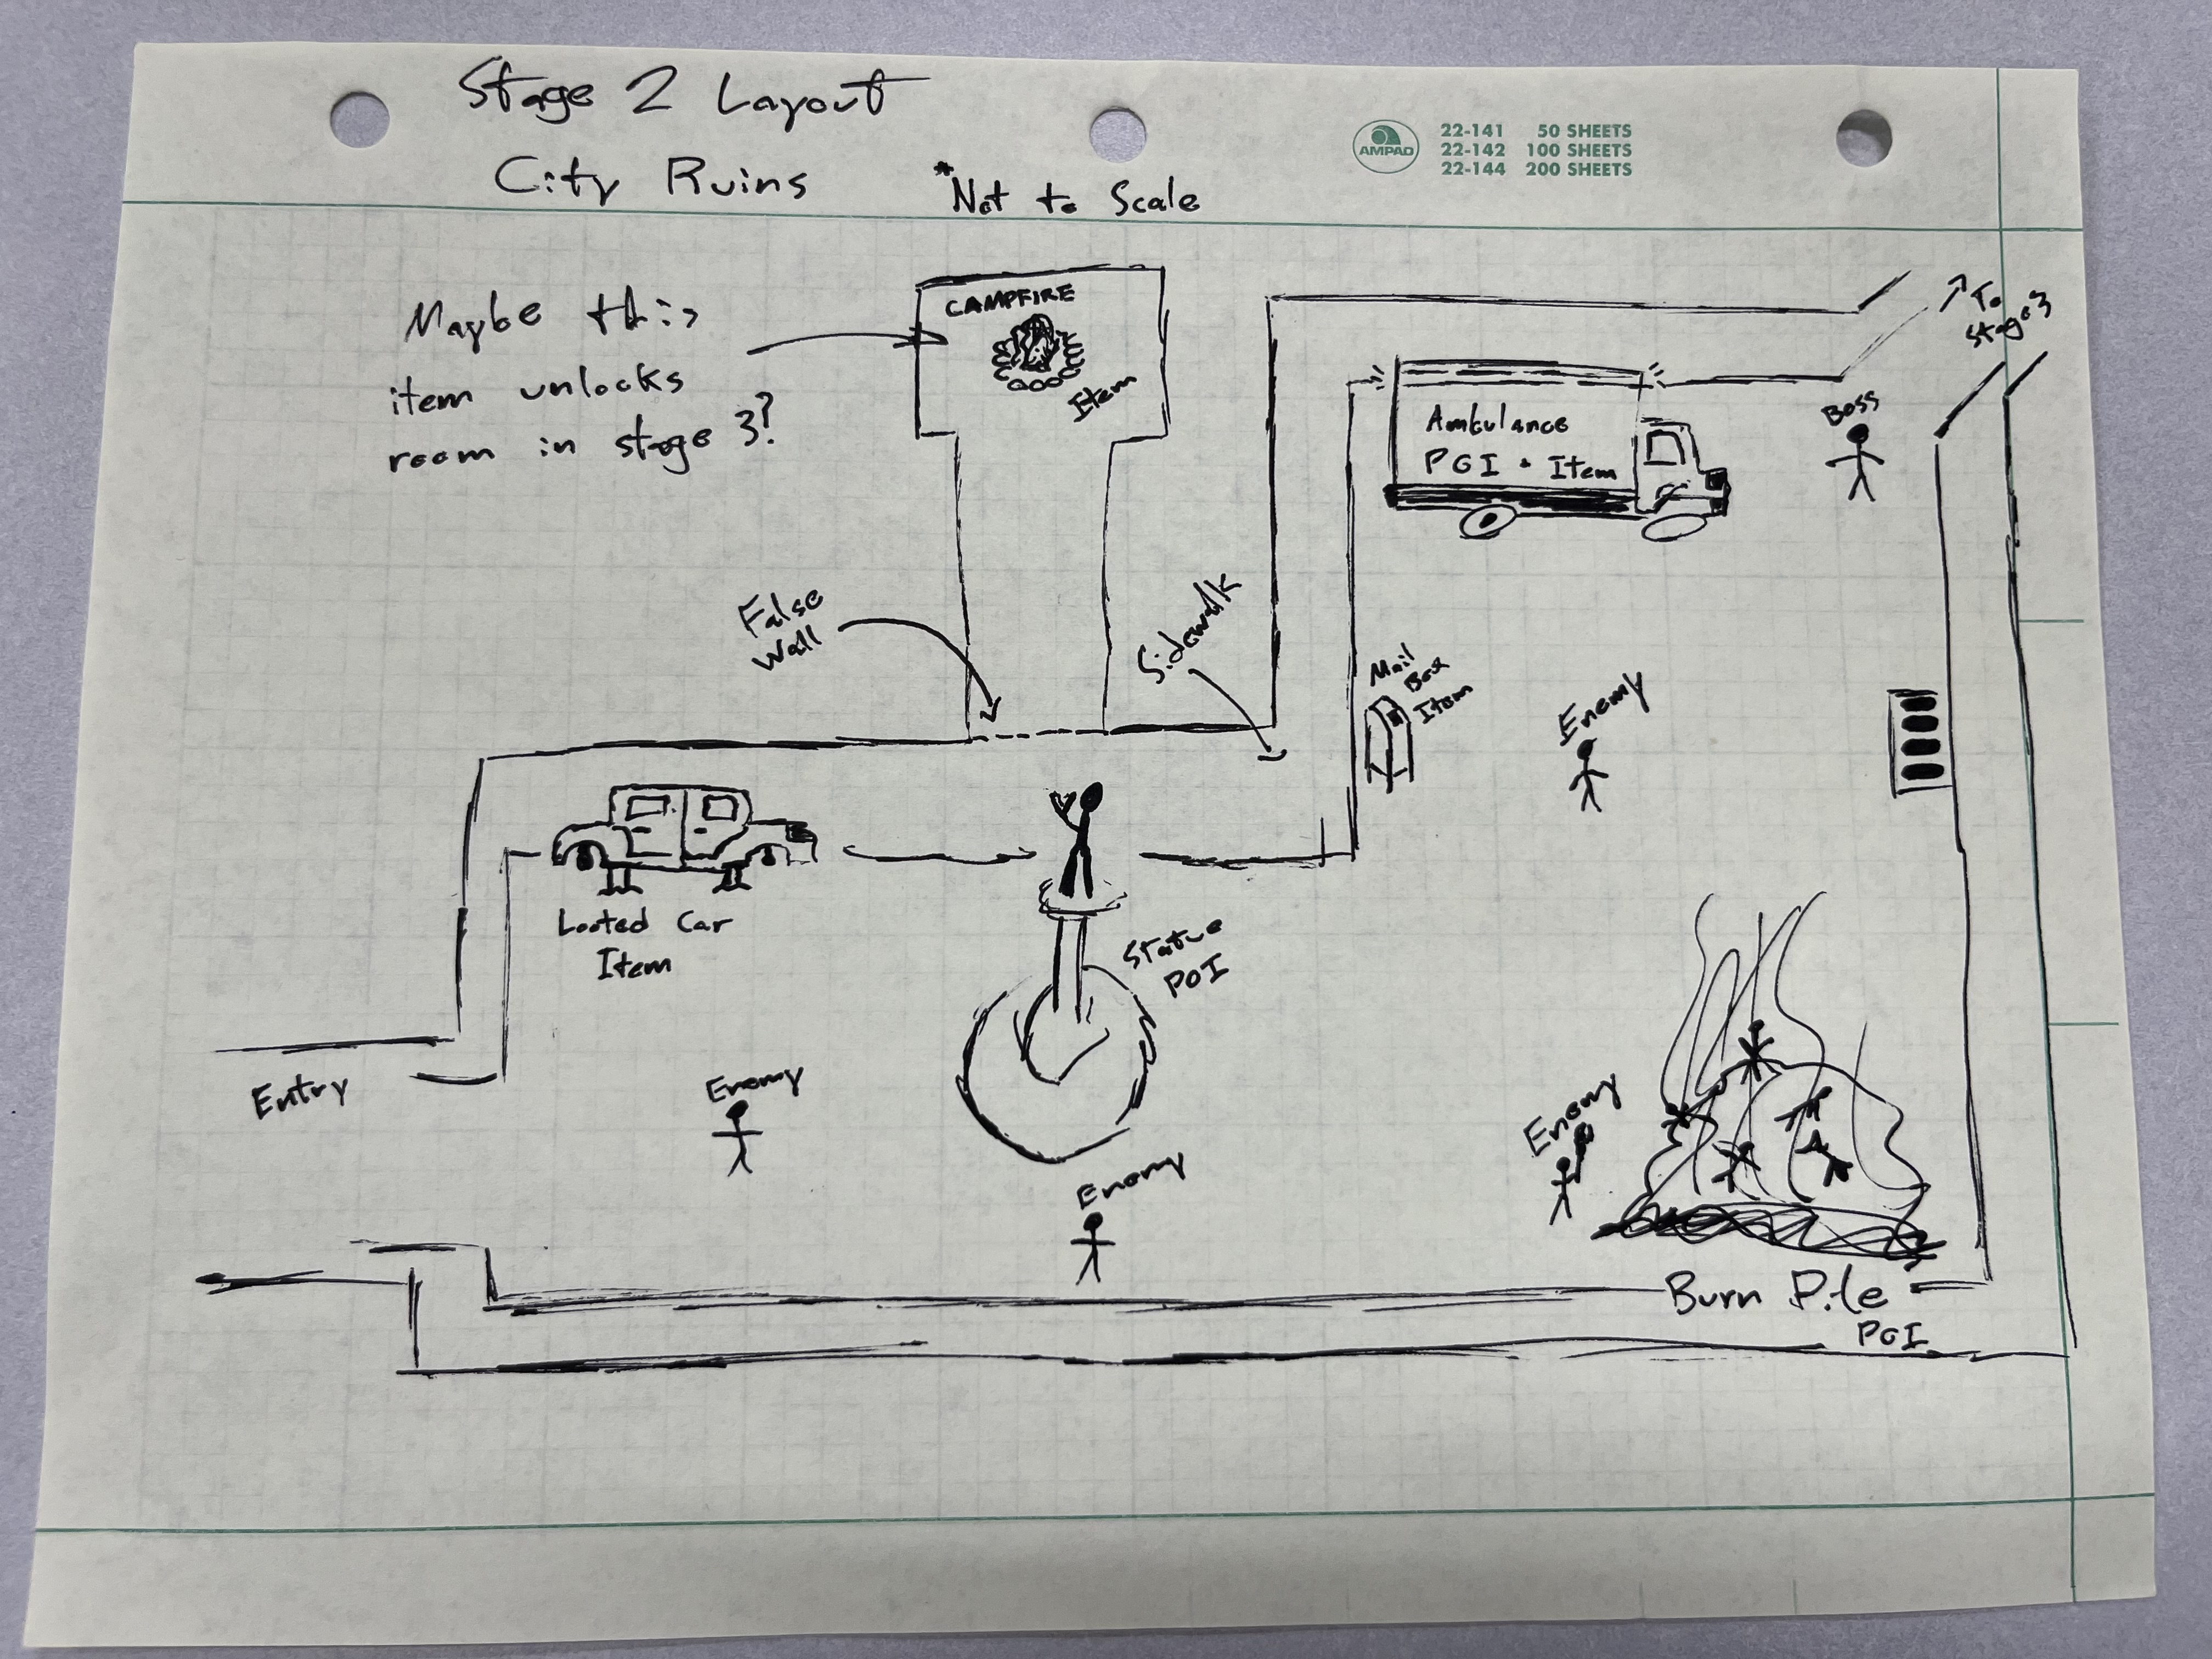 Stage 2 Layout
City Ruins
*Not to Scale
AMPAD
22-141 50 SHEETS
22-142 100 SHEETS
22-144 200 SHEETS
Maybe this
item unlocks
room in stage 3?
CAMPFIRE
Item
To
Stage 3
Ambulance
POI + Item
Boss
False
Wall
Sidewalk
Mail
Box
Item
Enemy
Looted Car
Item
Statue
POI
Entry
Enemy
Enemy
Enemy
Burn Pile
POI